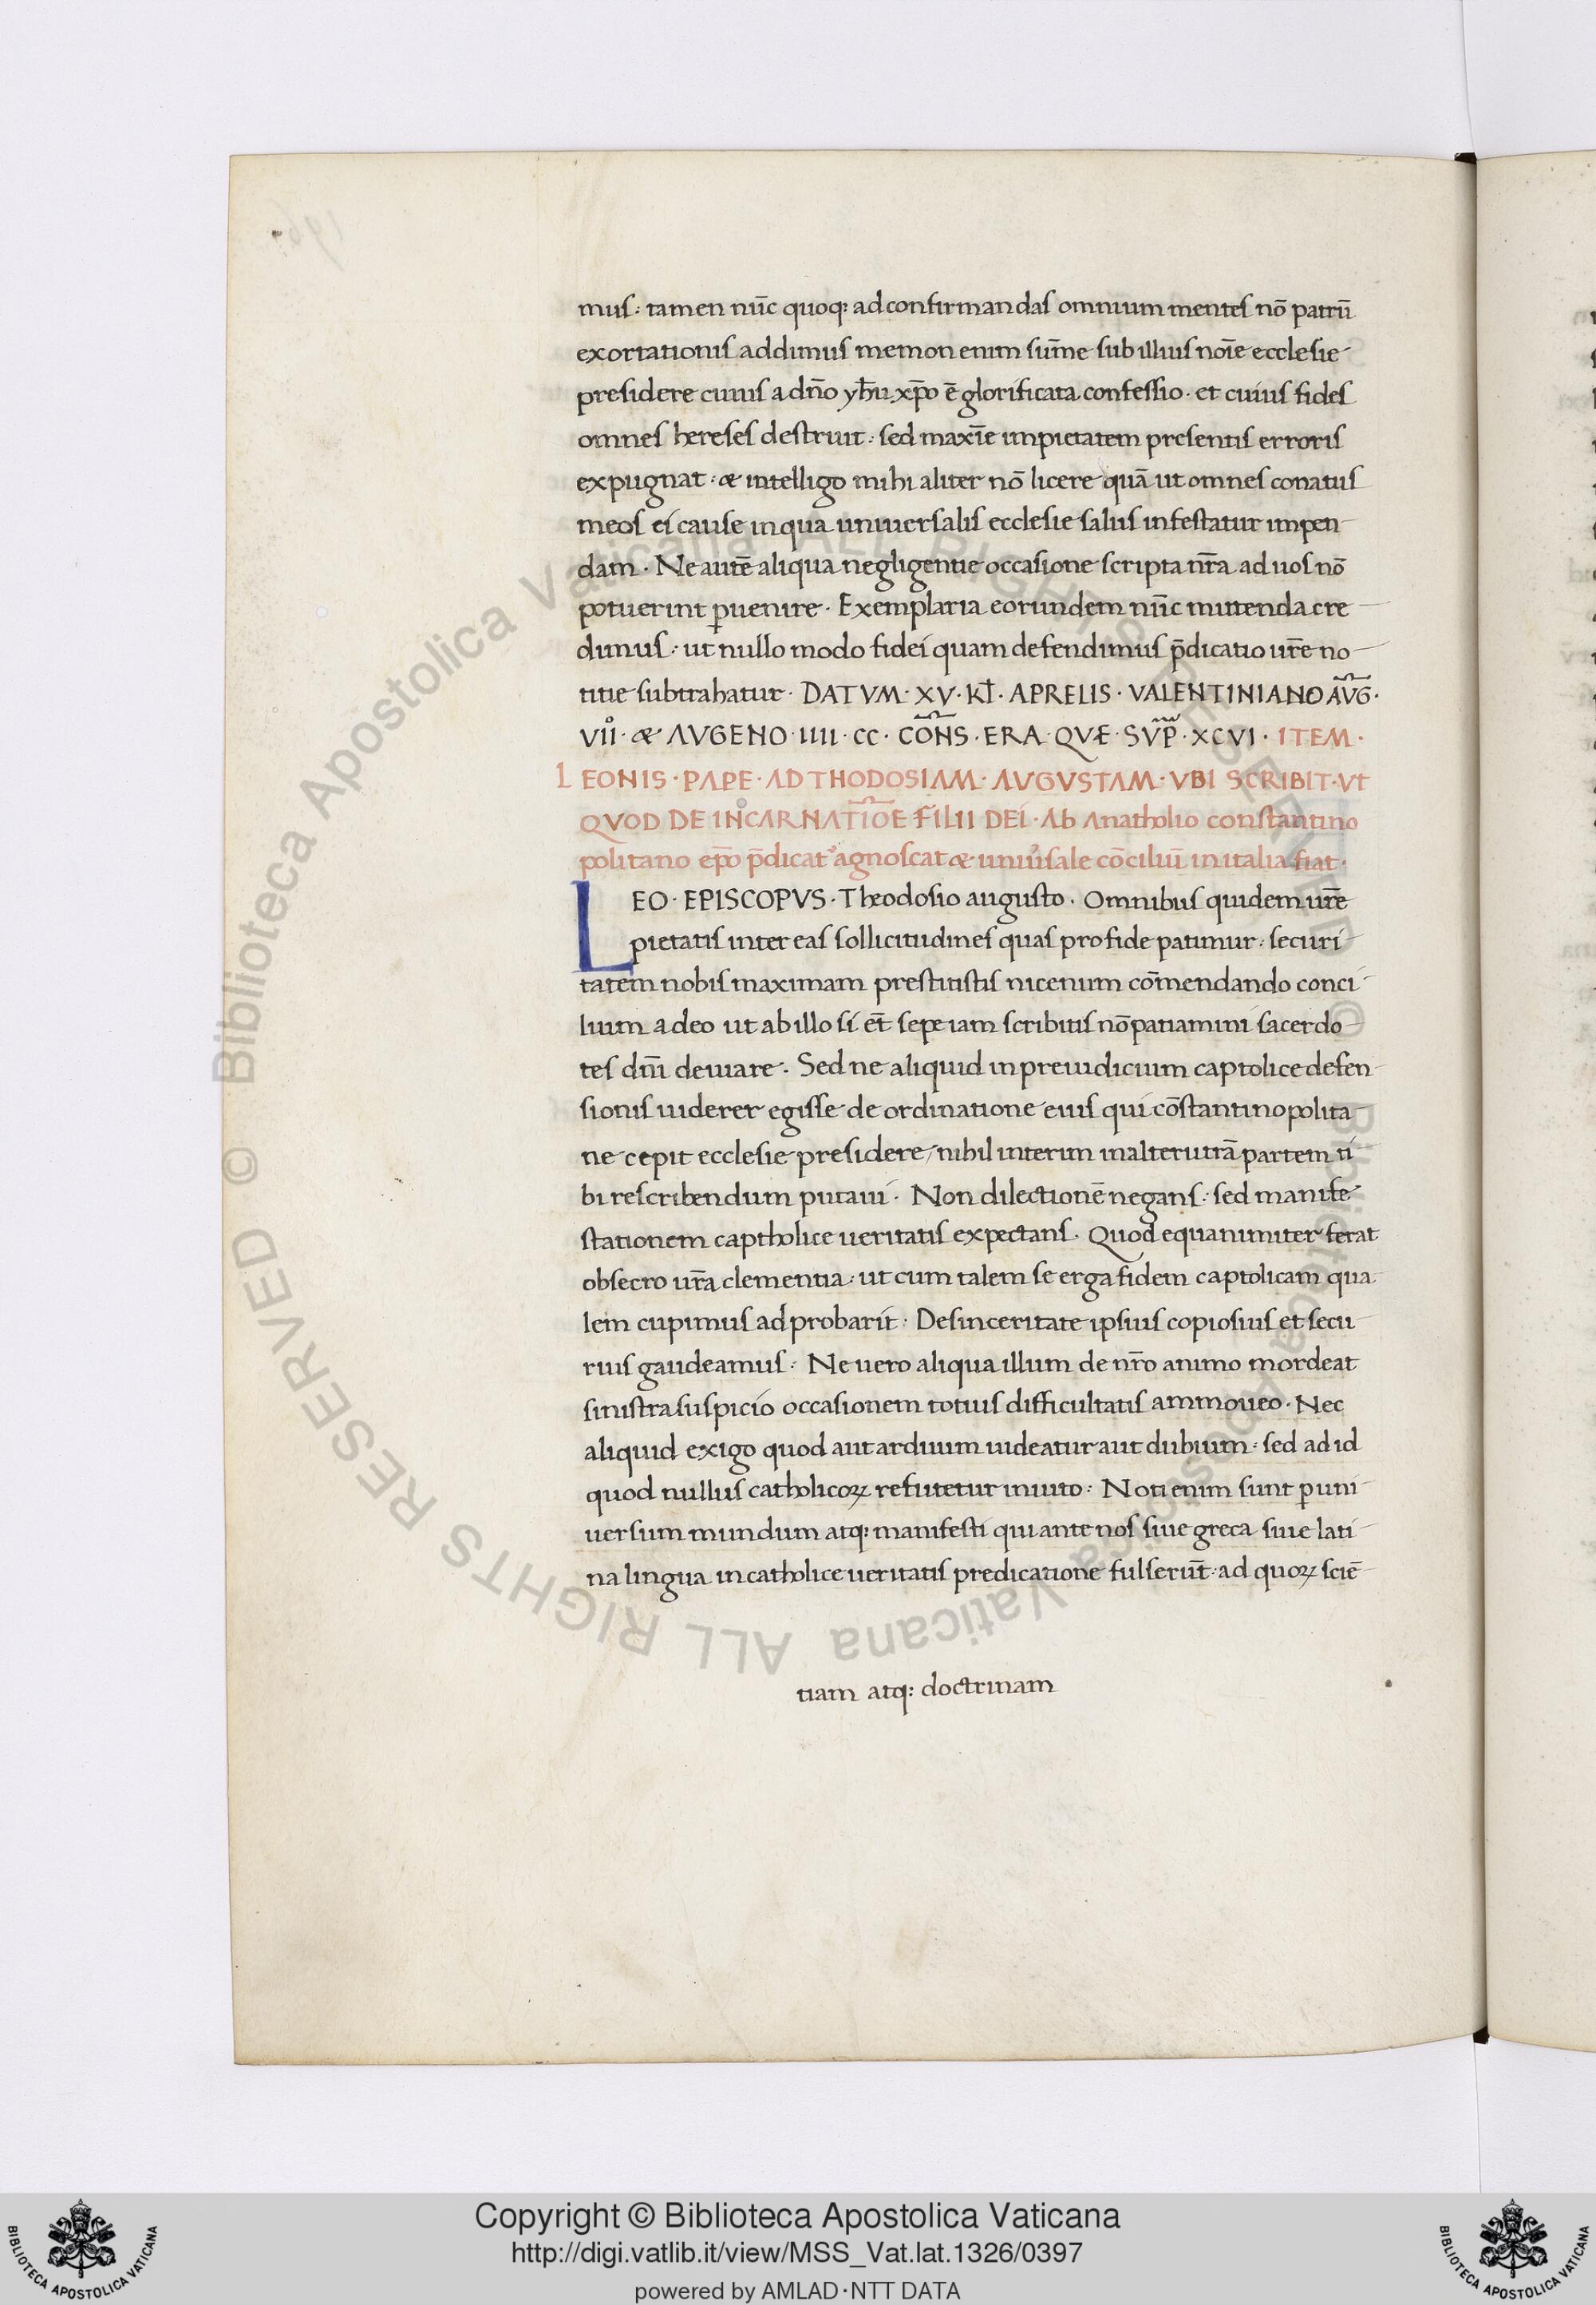 mus: tamen nūc quoq: ad confirmandas omnium mentes nō patrū
exortationis addimus memon enim sūme sub illius noīe ecclesie
presidere cuius a dn̄o yh̄u xp̄o ē glorificata confessio. et cuius fides
omnes hereses destruit: sed maxīe impietatem presentis erroris
expugnat: æ intelligo mihi aliter nō licere quā ut omnes conatus
meos ei cause in qua universalis ecclesie salus infestatur impen-
dam. Ne autē aliqua negligentie occasione scripta nr̄a ad uos nō
potuerint ꝑuenire. Exemplaria eorundem nūc mittenda cre-
dimus: ut nullo modo fidei quam defendimus p̄dicatio ur̄e no-
titie subtrahatur. DATVM. XV. Kł. APRELIS. VALENTINIANO AV̄G.
VII° æ AVGENO. IIII. CC. CO̅NS. ERA. QVÆ. SV̄P. XCVI. ITEM.
LEONIS. PAPE. AD THODOSIAM. AVGVSTAM. VBI SCRIBIT. Vt
QVOD DE INCARNATIO̅E FILII DEI. Ab Anatholio constantino
politano ep̄o p̄dicatʼ agnoscat æ uniūsale cōciliū in italia fiat.
LEO. EPISCOPVS. Theodosio augusto. Omnibus quidem ur̄e
pietatis inter eas sollicitudines quas pro fide patimur: securi-
tatem nobis maximam prestitistis nicenum cōmendando conci-
lium adeo ut ab illo si et̄ sepe iam scribitis nō patiamini sacerdo-
tes dn̄i deuiare. Sed ne aliquid in preiudicium captolice defen-
sionis uiderer egisse de ordinatione eius qui cōstantinopolita-
ne cepit ecclesie presidere, nihil interim in alterutrā partem ti-
bi rescribendum putaui. Non dilectionē negans: sed manife-
stationem captholice ueritatis expectans. Quod equanimiter ferat
obsecro ur̄a clementia: ut cum talem se erga fidem captolicam qua-
lem cupimus adprobarit. De sinceritate ipsius copiosius et secu-
rius gaudeamus: Ne uero aliqua illum de nr̄o animo mordeat
sinistra suspicio occasionem totius difficultatis ammoueo. Nec
aliquid exigo quod aut arduum uideatur aut dubium: sed ad id
quod nullus catholicoꝝ refutetur inuito: Noti enim sunt ꝑ uni-
uersum mundum atq: manifesti qui ante nos siue greca siue lati-
na lingua in catholice ueritatis predicatione fulserūt: ad quoꝝ sciē-
tiam atq: doctrinam
© Biblioteca Apostolica Vaticana ALL RIGHTS RESERVED © Biblioteca Apostolica Vaticana ALL RIGHTS RESERVED
Copyright © Biblioteca Apostolica Vaticana
http://digi.vatlib.it/view/MSS_Vat.lat.1326/0397
powered by AMLAD·NTT DATA
BIBLIOTECA APOSTOLICA VATICANA
BIBLIOTECA APOSTOLICA VATICANA